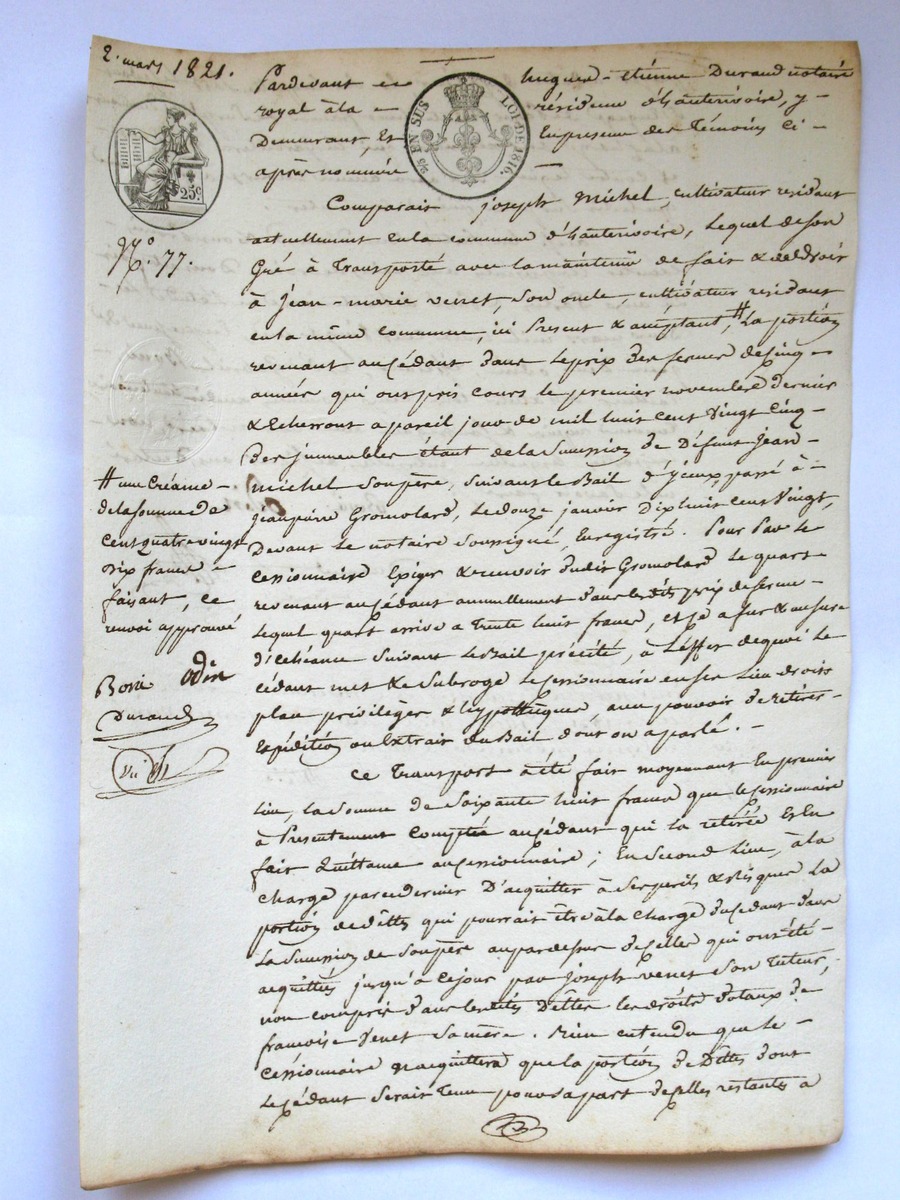 2. mars 1821.
Pardevant et hugues-étienne Durand notaire
royal à la résidence d'hauterivoire, y
Demeurant, Et En presence des Témoins ci-
après nommés
EN SUS
LOI DE 1816.
25c.
N.º 77.
Comparait joseph michel, cultivateur residant
actuellement en la commune d'hauterivoire, Lequel de son
Gré à Transporté avec la maintenüe de fait & de droit
à Jean-marie venet, son oncle, cultivateur residant
en la même commune, ici Present & acceptant, # La portion
revenant au Cédant dans le prix des fermes de cinq
années qui ont pris cours le premier novembre dernier
& Echerront a pareil jour de mil huit cent Vingt Cinq
Des jmmeubles étant de la Succession de Défunt Jean
michel Son père, Suivant le Bail d'jceux, passé à
Jean pierre Gromolard, Le douze janvier Dix huit cent Vingt,
Devant Le notaire Soussigné, Enregistré. Pour Par Le
cessionnaire Exiger & recevoir dudit Gromolard Le quart
revenant au Cédant annuellement dans lesdits prix de ferme
Lequel quart arrive a Trente huit francs, et ce a fur & mesure
d'échéance Suivant le Bail précité, à L'effet de quoi Le
cédant met & Subroge Le cessionnaire en ses Lieu droits
place privilèges & hypothèques avec pouvoir de retirer
Expédition ou Extrait du Bail dont on a parlé.
# une Créance
de la somme de
Cent quatre vingt
dix francs
faisant, ce
renvoi approuvé
Durand
Ce Transport à été fait moyennant En premier
Lieu, la Somme de Soixante huit francs que le cessionnaire
à Presentement Comptée au Cédant qui la retirée Et En
fait Quittance au cessionnaire; En Second Lieu, à la
charge par ce dernier D'acquitter à Ses perils & risques La
portion de dettes qui pourrait être à la charge du Cédant dans
La Succession de Son père au par dessus de Celles qui ont été
acquittées jusqu'à ce jour par Joseph venet Son Tuteur,
non compris dans lesdites Dettes les droits dotaux de
françoise Venet Sa mère. Bien entendu que le
Cessionnaire n'acquittera que la portion de Dettes dont
Le Cédant Serait Tenu pour sa part de celles restantes à